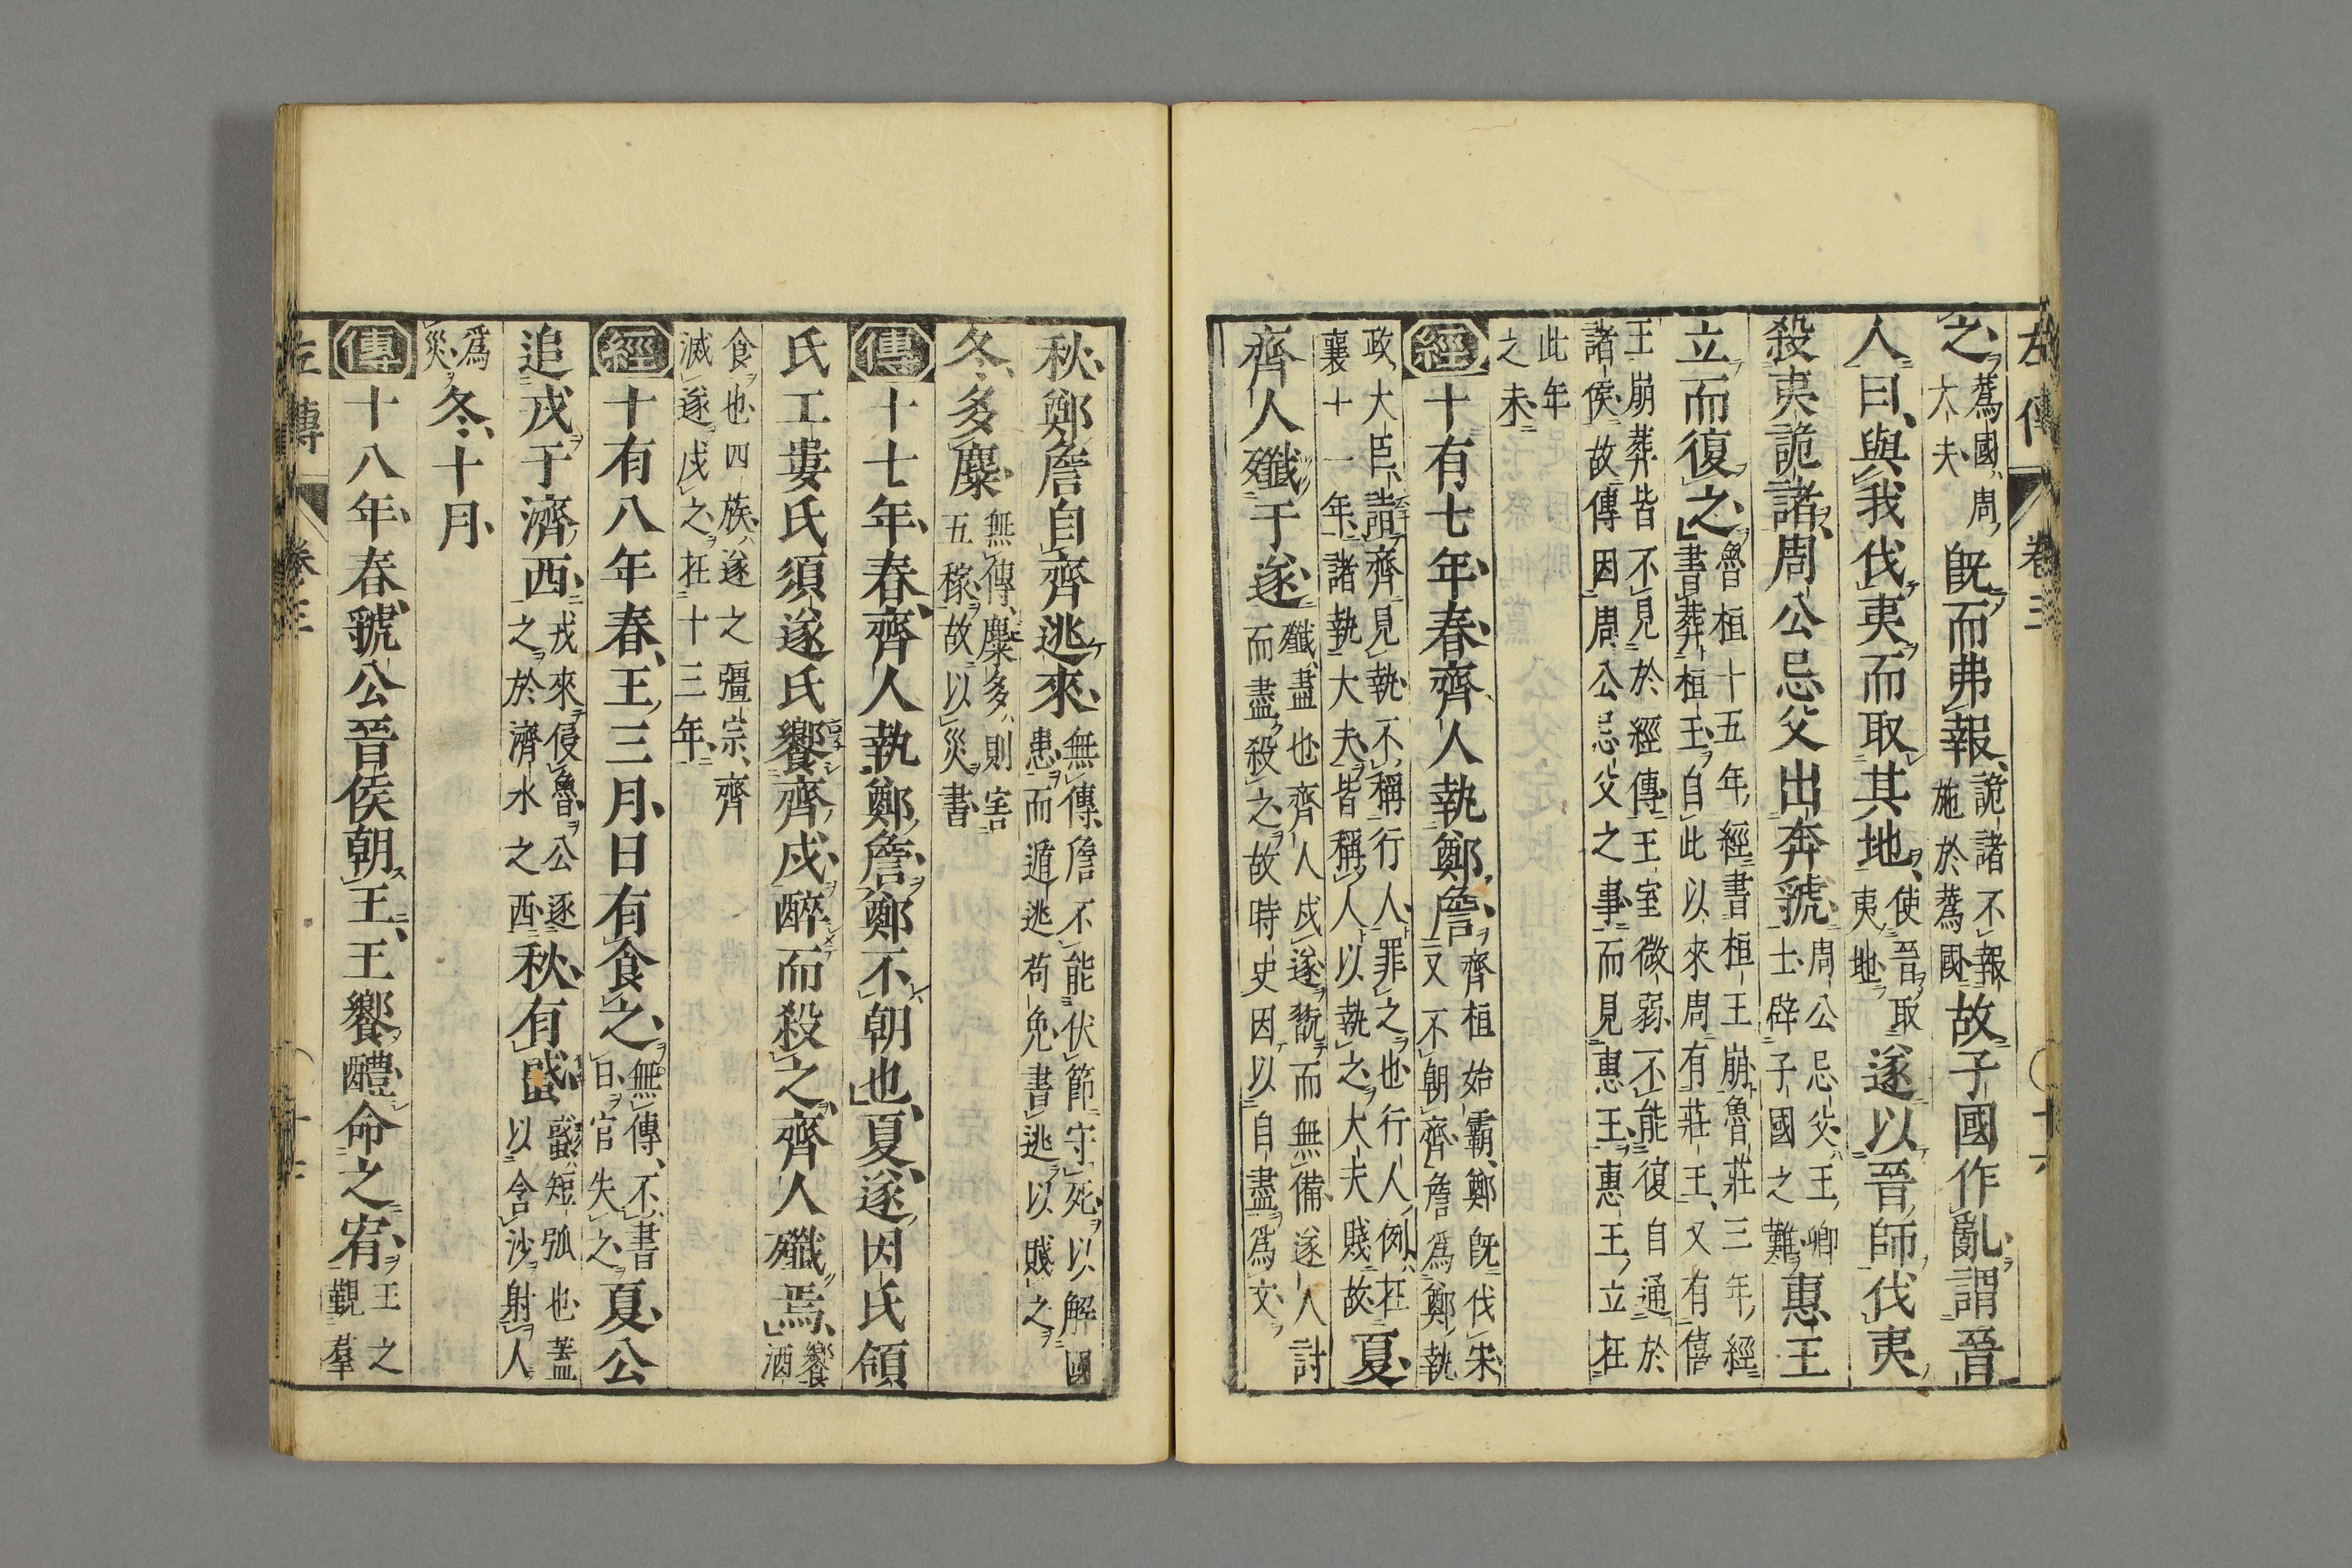 左傳 卷三 十六
之蔿國周大夫既而弗報詭諸不報施於蔿國故子國作亂謂晉
人曰與我伐夷而取其地使晉取夷地遂以晉師伐夷
殺夷詭諸周公忌父出奔虢周公忌父王卿士辟子國之難惠王
立而復之魯桓十五年經書桓王崩魯莊三年經書葬桓王自此以來周有莊王又有僖
王崩葬皆不見於經傳王室微弱不能復自通於諸侯故傳因周公忌父之事而見惠王惠王立在
此年之末
經十有七年春齊人執鄭詹齊桓始霸鄭既伐宋又不朝齊詹爲鄭執
政大臣詣齊見執不稱行人人罪之也行人例在襄十一年諸執大夫皆稱人以執之大夫賤故夏
齊人殲于遂殲盡也齊人戍遂翫而無備遂人討而盡殺之故時史因以自盡爲文
秋鄭詹自齊逃來無傳詹不能伏節守死以解國患而遁逃苟免書逃以賤之
冬多麋無傳麋多則害五稼故以災書
傳十七年春齊人執鄭詹鄭不朝也夏遂因氏頜
氏工婁氏須遂氏饗齊戍醉而殺之齊人殲焉饗酒
食也四族遂之彊宗齊滅遂戍之在十三年
經十有八年春王三月日有食之無傳不書日官失之夏公
追戎于濟西戎來侵魯公逐之於濟水之西秋有蜮蜮短弧也蓋以含沙射人
爲災冬十月
傳十八年春虢公晉侯朝王王饗醴命之宥王之覲羣
左傳 卷三